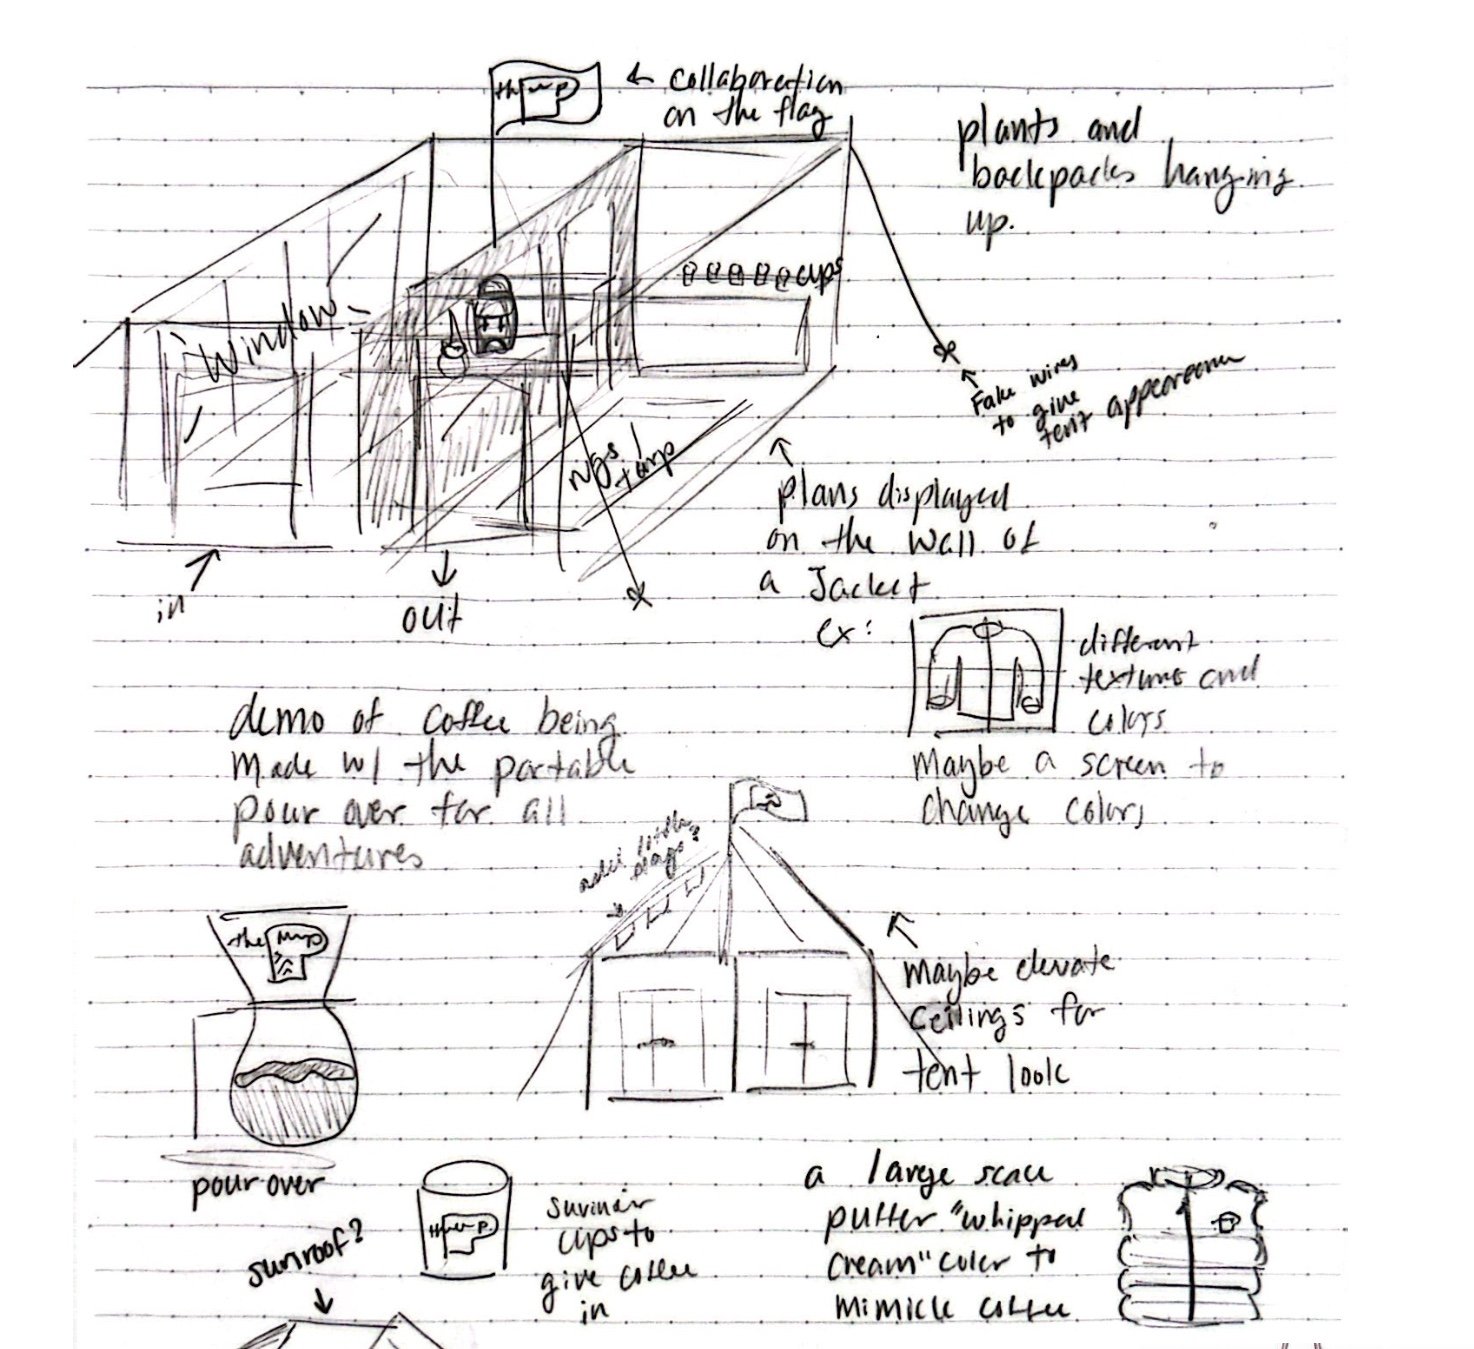 ← collaboration
on the flag
plants and
backpacks hanging
up.
cups
Window
Fake wires
to give
tent appearance
rugs /
tarp
plans displayed
on the wall of
a Jacket
ex:
in
out
different
textures and
colors
Maybe a screen to
change colors
demo of coffee being
made w/ the portable
pour over for all
adventures
add little
flags?
the
Maybe elevate
ceilings for
tent look
pour over
sunroof?
suvinair
cups to
give coffee
in
a large scale
puffer "whipped
cream" color to
mimick coffee